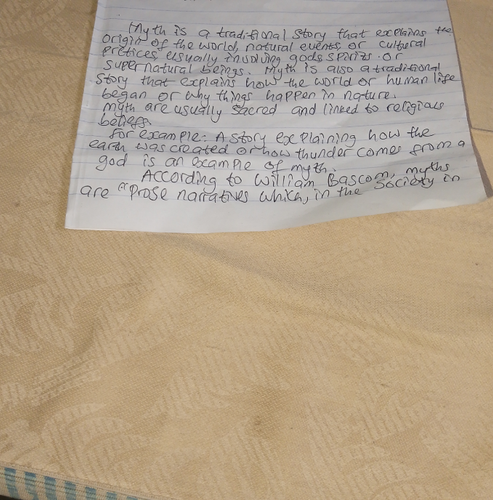 Myth is a traditional story that explains the
origin of the world, natural events or cultural
prctices, usually involving gods, spirits or
supernatural beings. Myth is also a traditional
story that explains how the world or human life
began or why things happen in nature.
Myth are usually sacred and linked to religious
beliefs.
for example: A story explaining how the
earth was created or how thunder comes from a
god is an example of myth.
According to William Bascom, myths
are "prose narratives which, in the society in